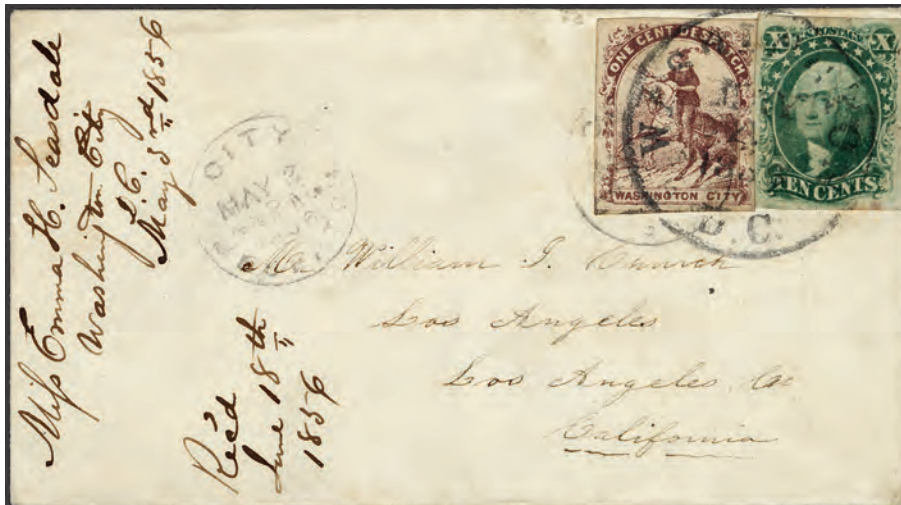 Miss Emma H. Teasdale
Washington City
D.C.
May 3rd 1856
Rec'd
June 18th
1856
CITY
MAY 3
ONE CENT DESPATCH
WASHINGTON CITY
X U.S. POSTAGE X
TEN CENTS
D.C.
Mr William J.
Los Angeles
Los Angeles Co
California